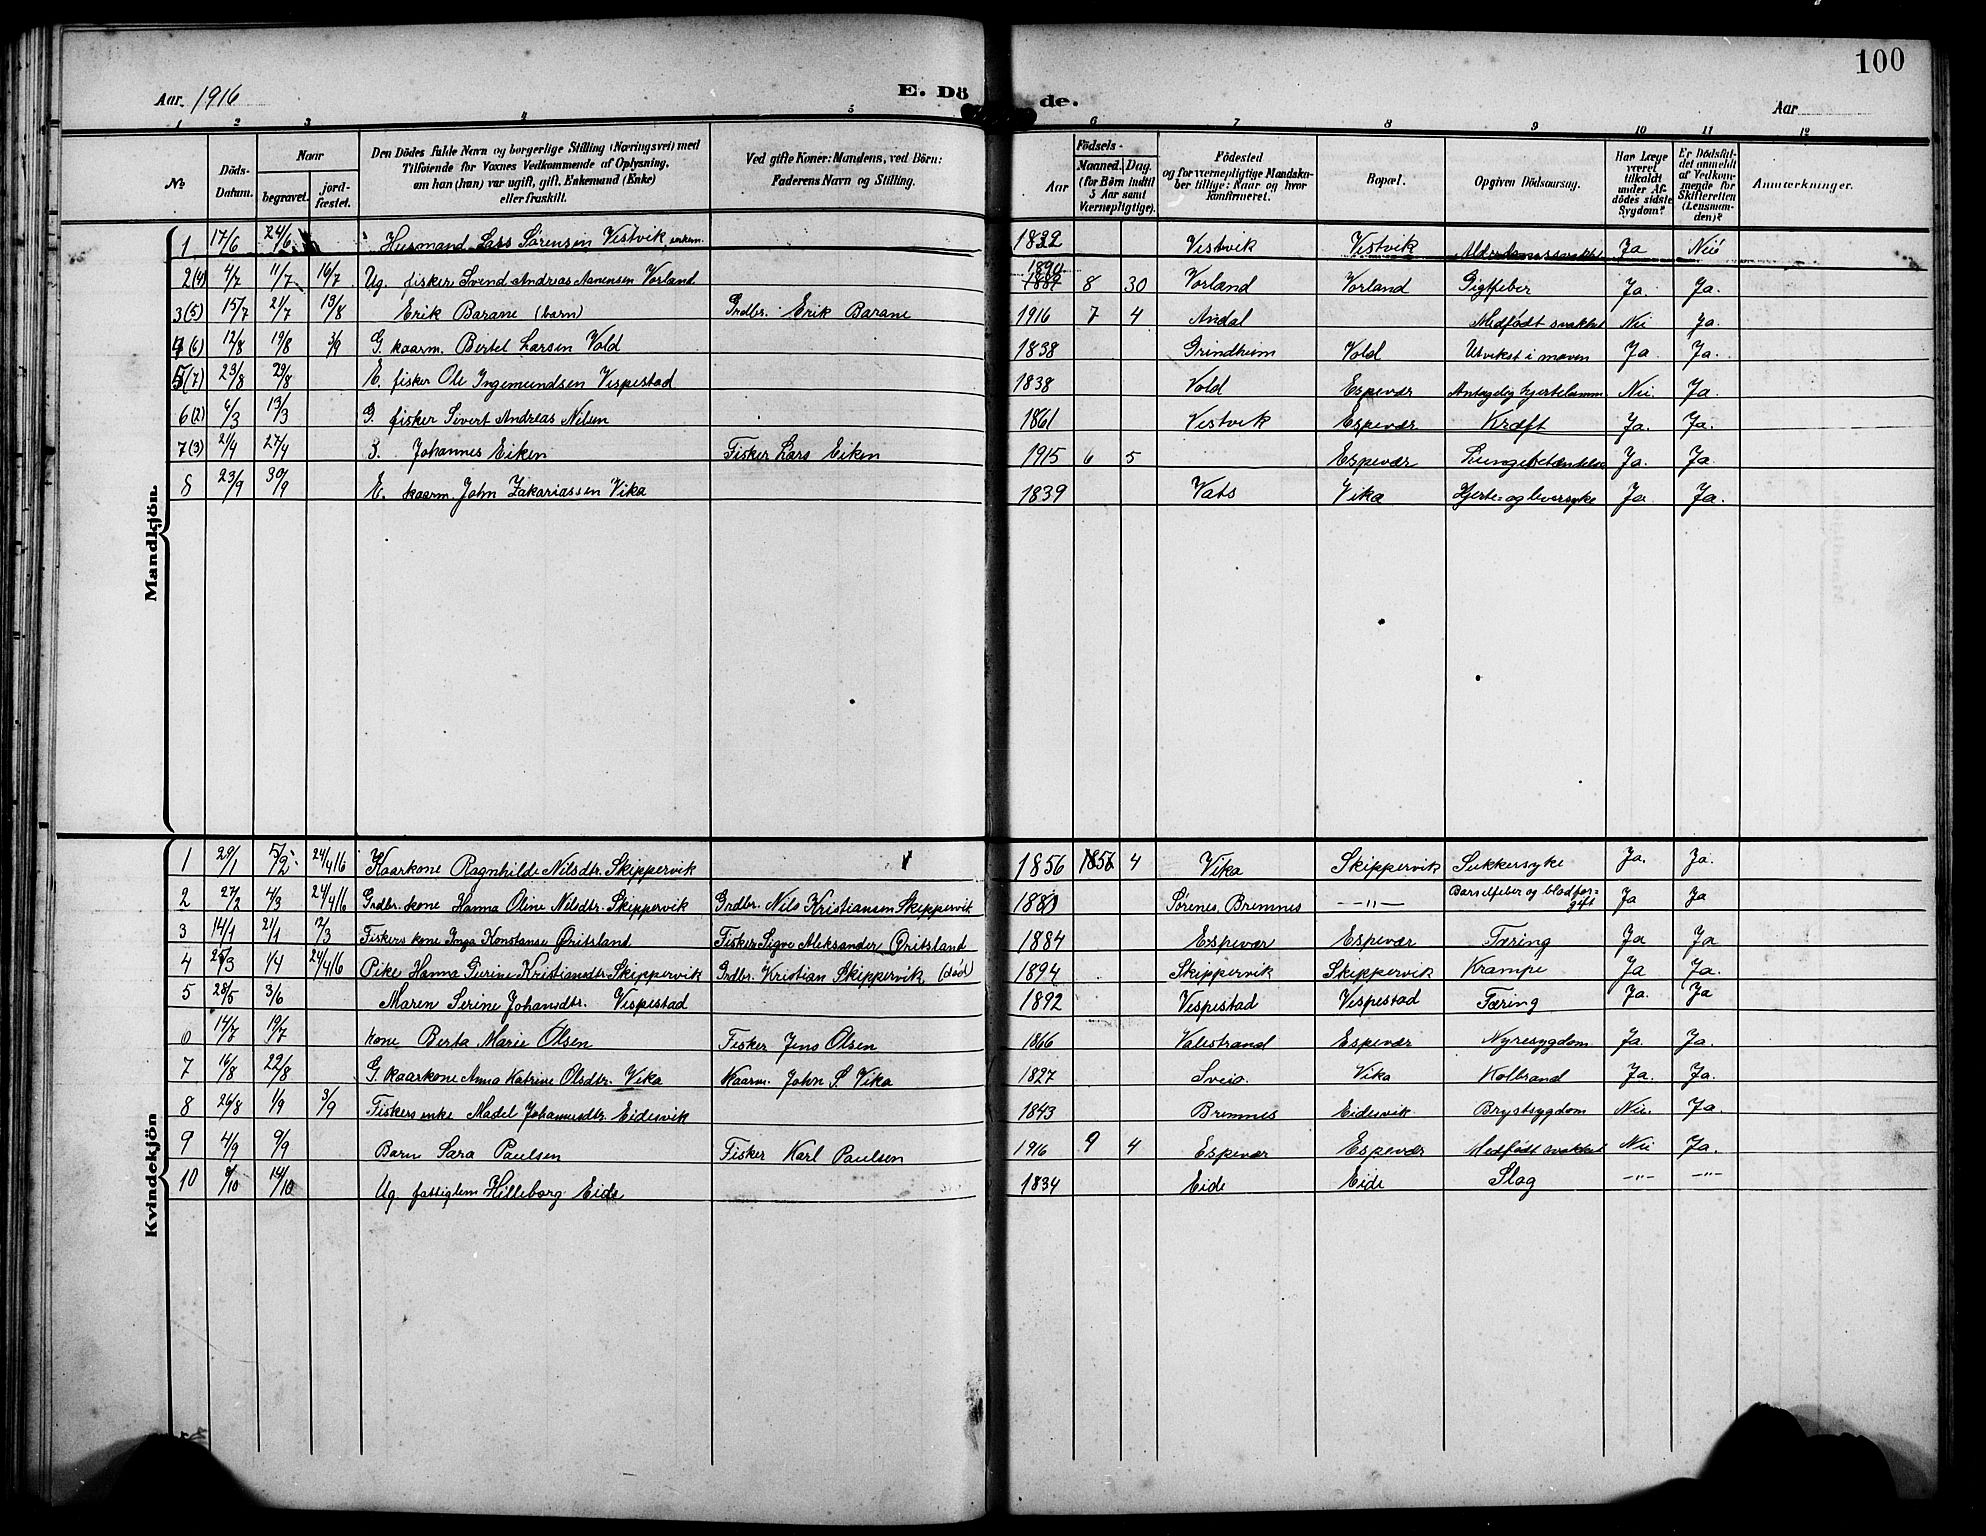 100
Aar 1916
E. Dö
de.
Aar
1 2 3 4 5 6 7 8 9 10 11 12
No
Döds-
Datum.
Naar
begravet.
jord-
fæstet.
Den Dödes fulde Navn og borgerlige Stilling (Næringsvei) med
Tilföiende for Voxnes Vedkommende af Oplysning.
om han (hun) var ugift, gift, Enkemand (Enke)
eller fraskilt.
Ved gifte Koner: Mandens, ved Börn:
Faderens Navn og Stilling.
Födsels-
Aar
Maaned.
Dag.
(for Börn indtil
5 Aar samt
Værnepligtige).
Födested
og for værnepligtige Mandska-
ber tillige: Naar og hvor
konfirmeret.
Bopæl.
Opgiven Dödsaarsag.
Har Læge
været
tilkaldt
under Af-
dödes sidste
Sygdom?
Er Dödsfal-
det anmeldt
af Vedkom-
mende for
Skifteretten
(Lensman-
den)?
Anmærkninger.
Mandkjön.
1 17/6 24/6 Husmand Lars Sørensen Vestvik, enkem. 1832 Vestvik Vestvik Ja Nei
2(4) 4/7 11/7 16/7 Ug. fisker Svend Andreas Aanensen Vorland 1890 1887 8 30 Vorland Vorland Gigtfeber Ja. Ja.
3(5) 15/7 21/7 13/8 Erik Barane (barn) Grdbr. Erik Barane 1916 7 4 Andal Medfödt svakhet Nei Ja.
4(6) 12/8 19/8 3/9 G. kaarm. Bertel Larsen Vold 1838 Grindheim Vold Utvekst i maven Ja Ja.
5(7) 23/8 29/8 E. fisker Ole Ingemundsen Vespestad 1838 Vold Espevær Antagelig hjertelamm. Nei. Ja
6(2) 6/3 13/3 G. fisker Sivert Andreas Nilsen 1861 Vestvik Espevær Kræft Ja. Ja.
7(3) 21/4 27/4 Johannes Eiken Fisker Lars Eiken 1915 6 5 Espevær Lungebetændelse Ja. Ja.
8 23/9 30/9 E. kaarm. John Zakariassen Vika 1839 Vats Vika Hjerte- og leversyke Ja Ja.
Kvindekjön
1 29/1 5/2 24/4 16 Kaarkone Ragnhilde Nilsdtr. Skippervik 1856 1856 4 Vika Skippervik Sukkersyke Ja. Ja.
2 27/2 4/3 24/4 16 Grdbr. kone Hanna Oline Nilsdtr. Skippervik Grdbr. Nils Kristiansen Skippervik 1880 Sørenes, Bremnes —"— Barselfeber og blodfor-
gift Ja Ja
3 14/1 21/1 12/3 Fiskers kone Inga Konstanse Øritsland Fisker Sigve Aleksander Øritsland 1884 Espevær Espevær Tæring Ja Ja
4 1/4 24/4 16 Pike Hanna Gurine Kristiansdtr. Skippervik Grdbr. Kristian Skippervik (död) 1894 Skippervik Skippervik Krampe Ja Ja.
5 28/5 3/6 Maren Serine Johansdtr. Vespestad 1892 Vespestad Vespestad Tæring Ja. Ja
6 14/7 19/7 kone Berta Marie Olsen Fisker Jens Olsen 1866 Valestrand Espevær Nyresygdom Ja. Ja.
7 16/8 22/8 G. kaarkone Anna Katrine Olsdtr. Vika Kaarm. John S. Vika 1827 Sveio. Vika Kolbrand Ja. Ja.
8 26/8 1/9 3/9 Fiskers enke Madel Johannesdtr. Eidesvik 1843 Bremnes Eidesvik Brystsygdom Nei. Ja.
9 4/9 9/9 Barn Sara Paulsen Fisker Karl Paulsen 1916 9 4 Espevær Espevær Medfödt svakhet Nei Ja.
10 8/10 14/10 Ug. fattiglem Hilleborg Eide 1834 Eide Eide Slag —"— —"—